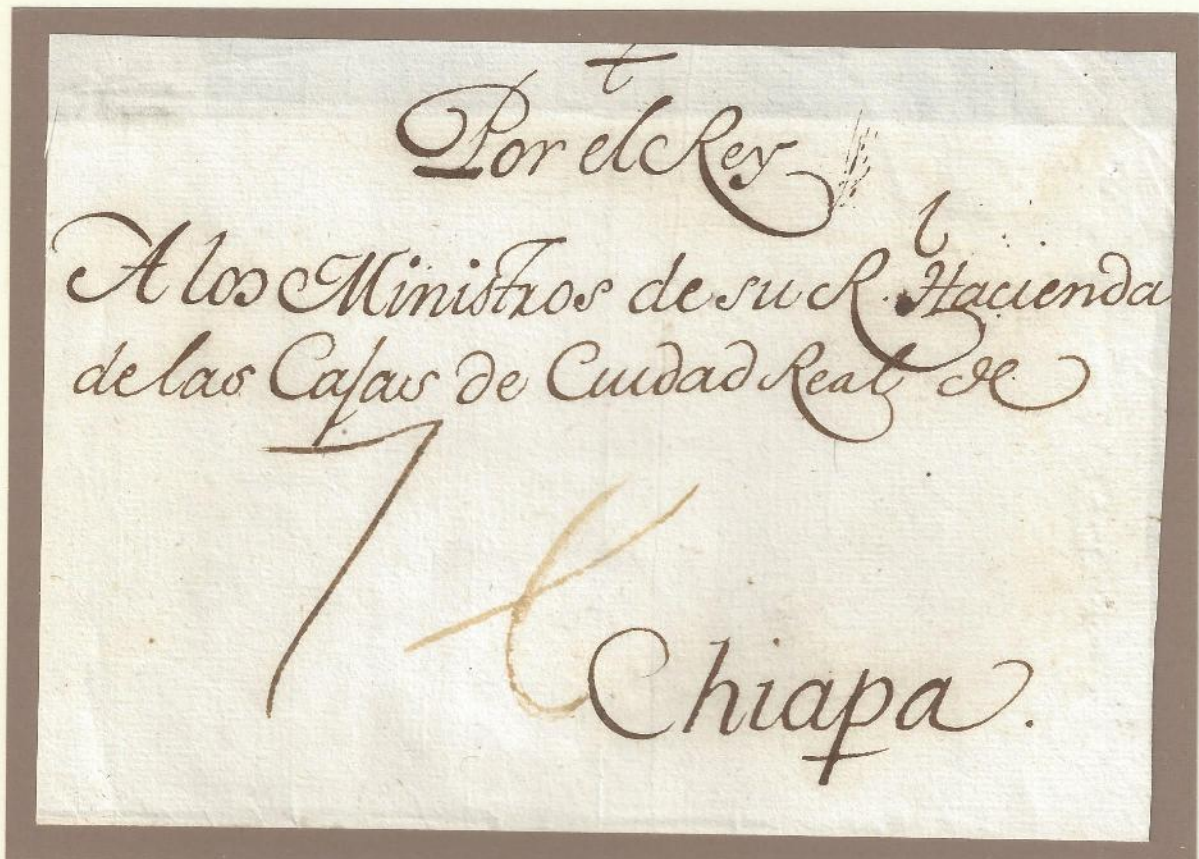 Por el Rey
A los Ministros de su R.l Hacienda
de las Cajas de Ciudad Real de
7
Chiapa.